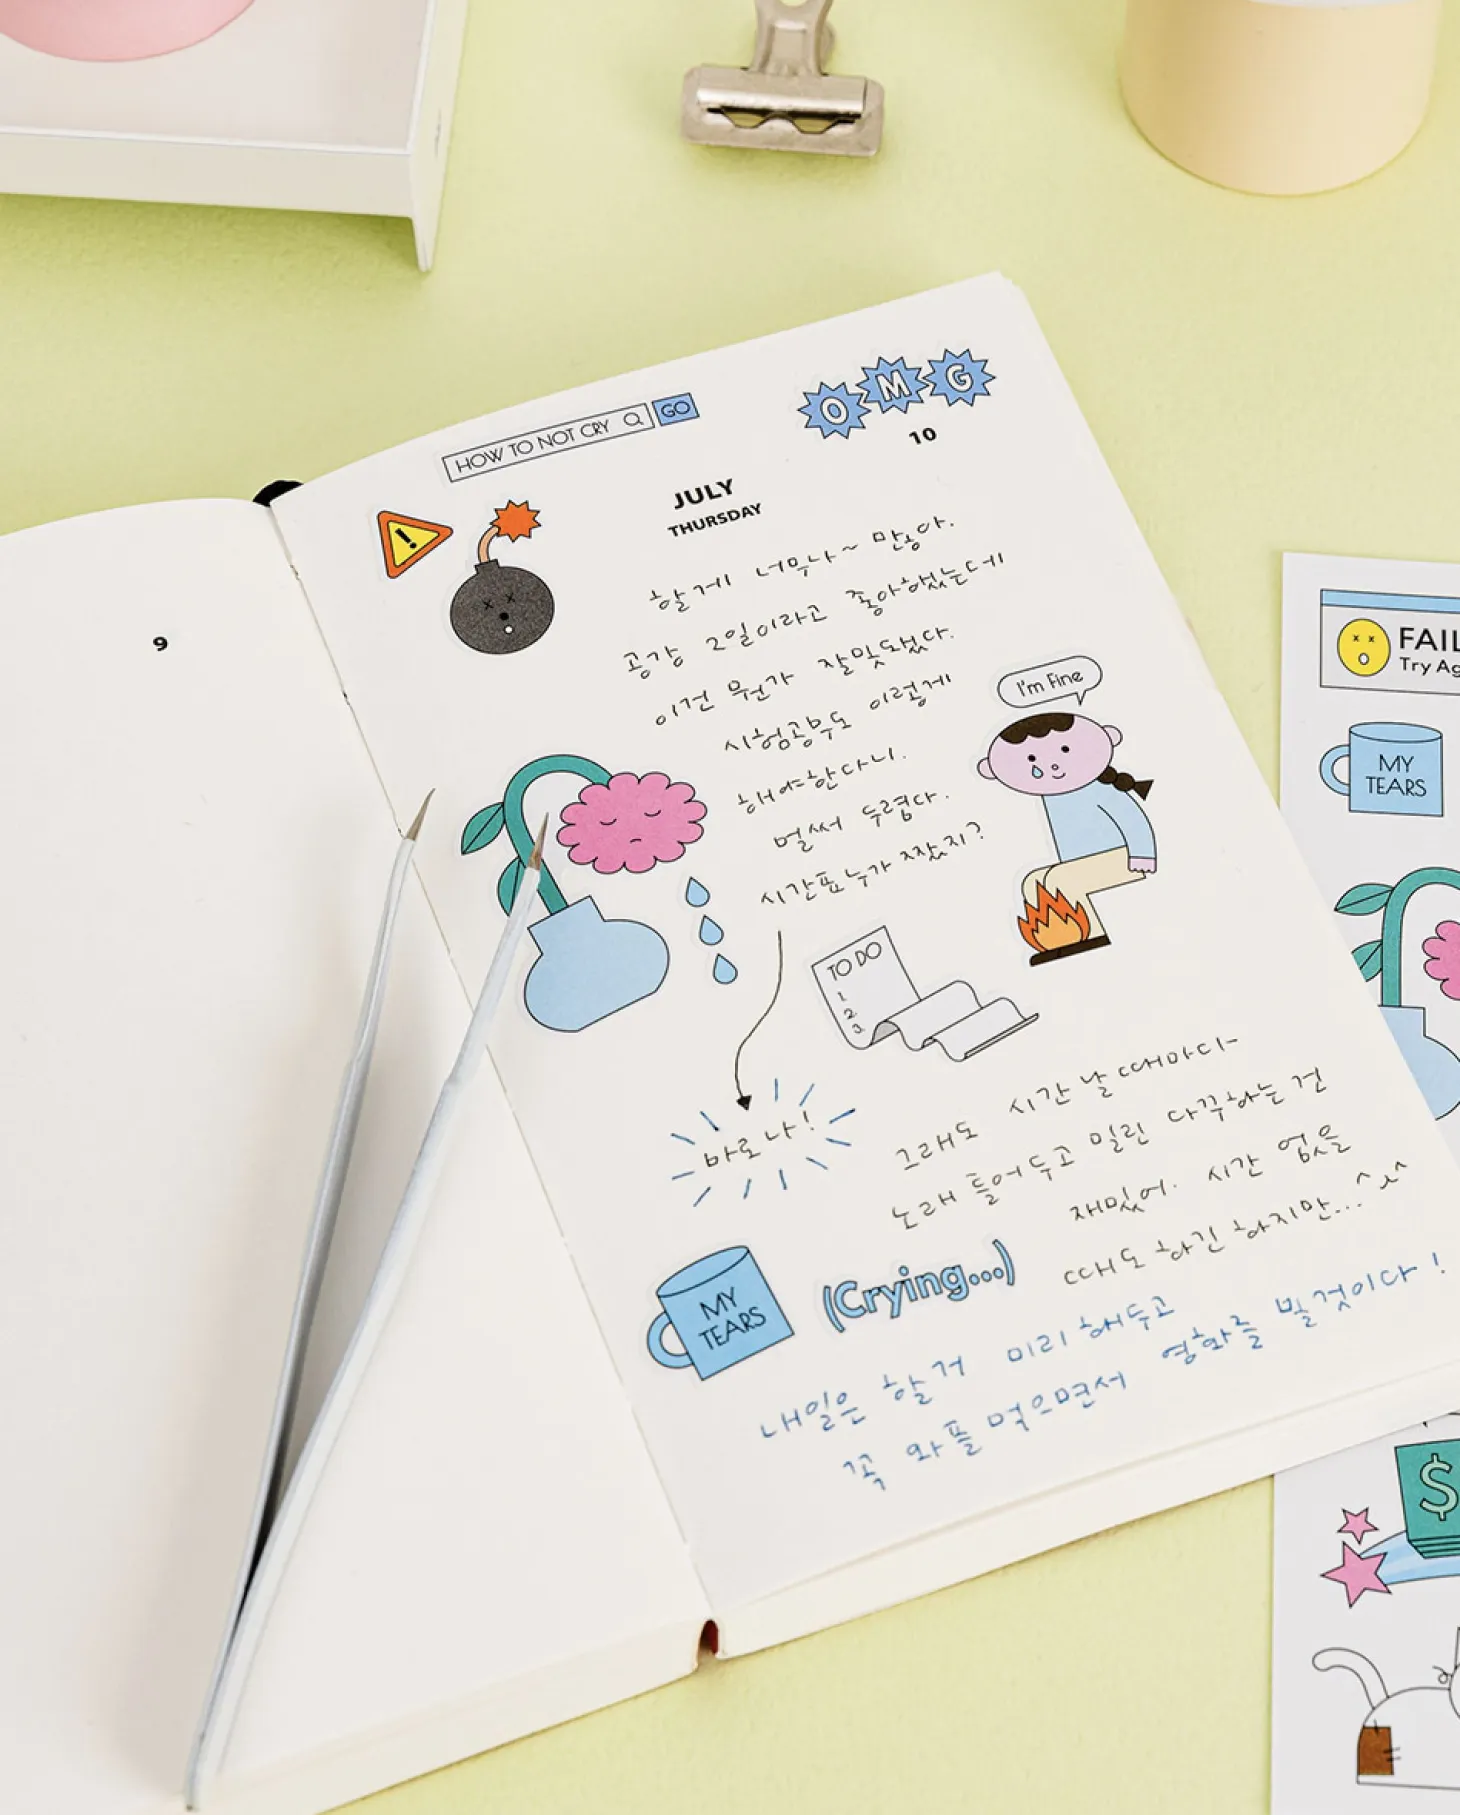 HOW TO NOT CRY GO
OMG
10
JULY
THURSDAY
9
할게 너무나~ 많아.
공강 2일이라고 좋아했는데
이건 뭔가 잘못됐다.
시험공부도 이렇게
해야한다니.
벌써 두렵다.
시간표 누가 짰지?
I'm Fine
TO DO
1
2
3
바로 나!
그래도 시간 날 때마다
노래 틀어두고 밀린 다꾸하는 건
재밌어. 시간 없을
때도 하긴 하지만...^^
MY
TEARS
(Crying...)
내일은 할거 미리 해두고
꼭 와플 먹으면서 영화를 볼것이다!
FAIL
Try Ag
MY
TEARS
$